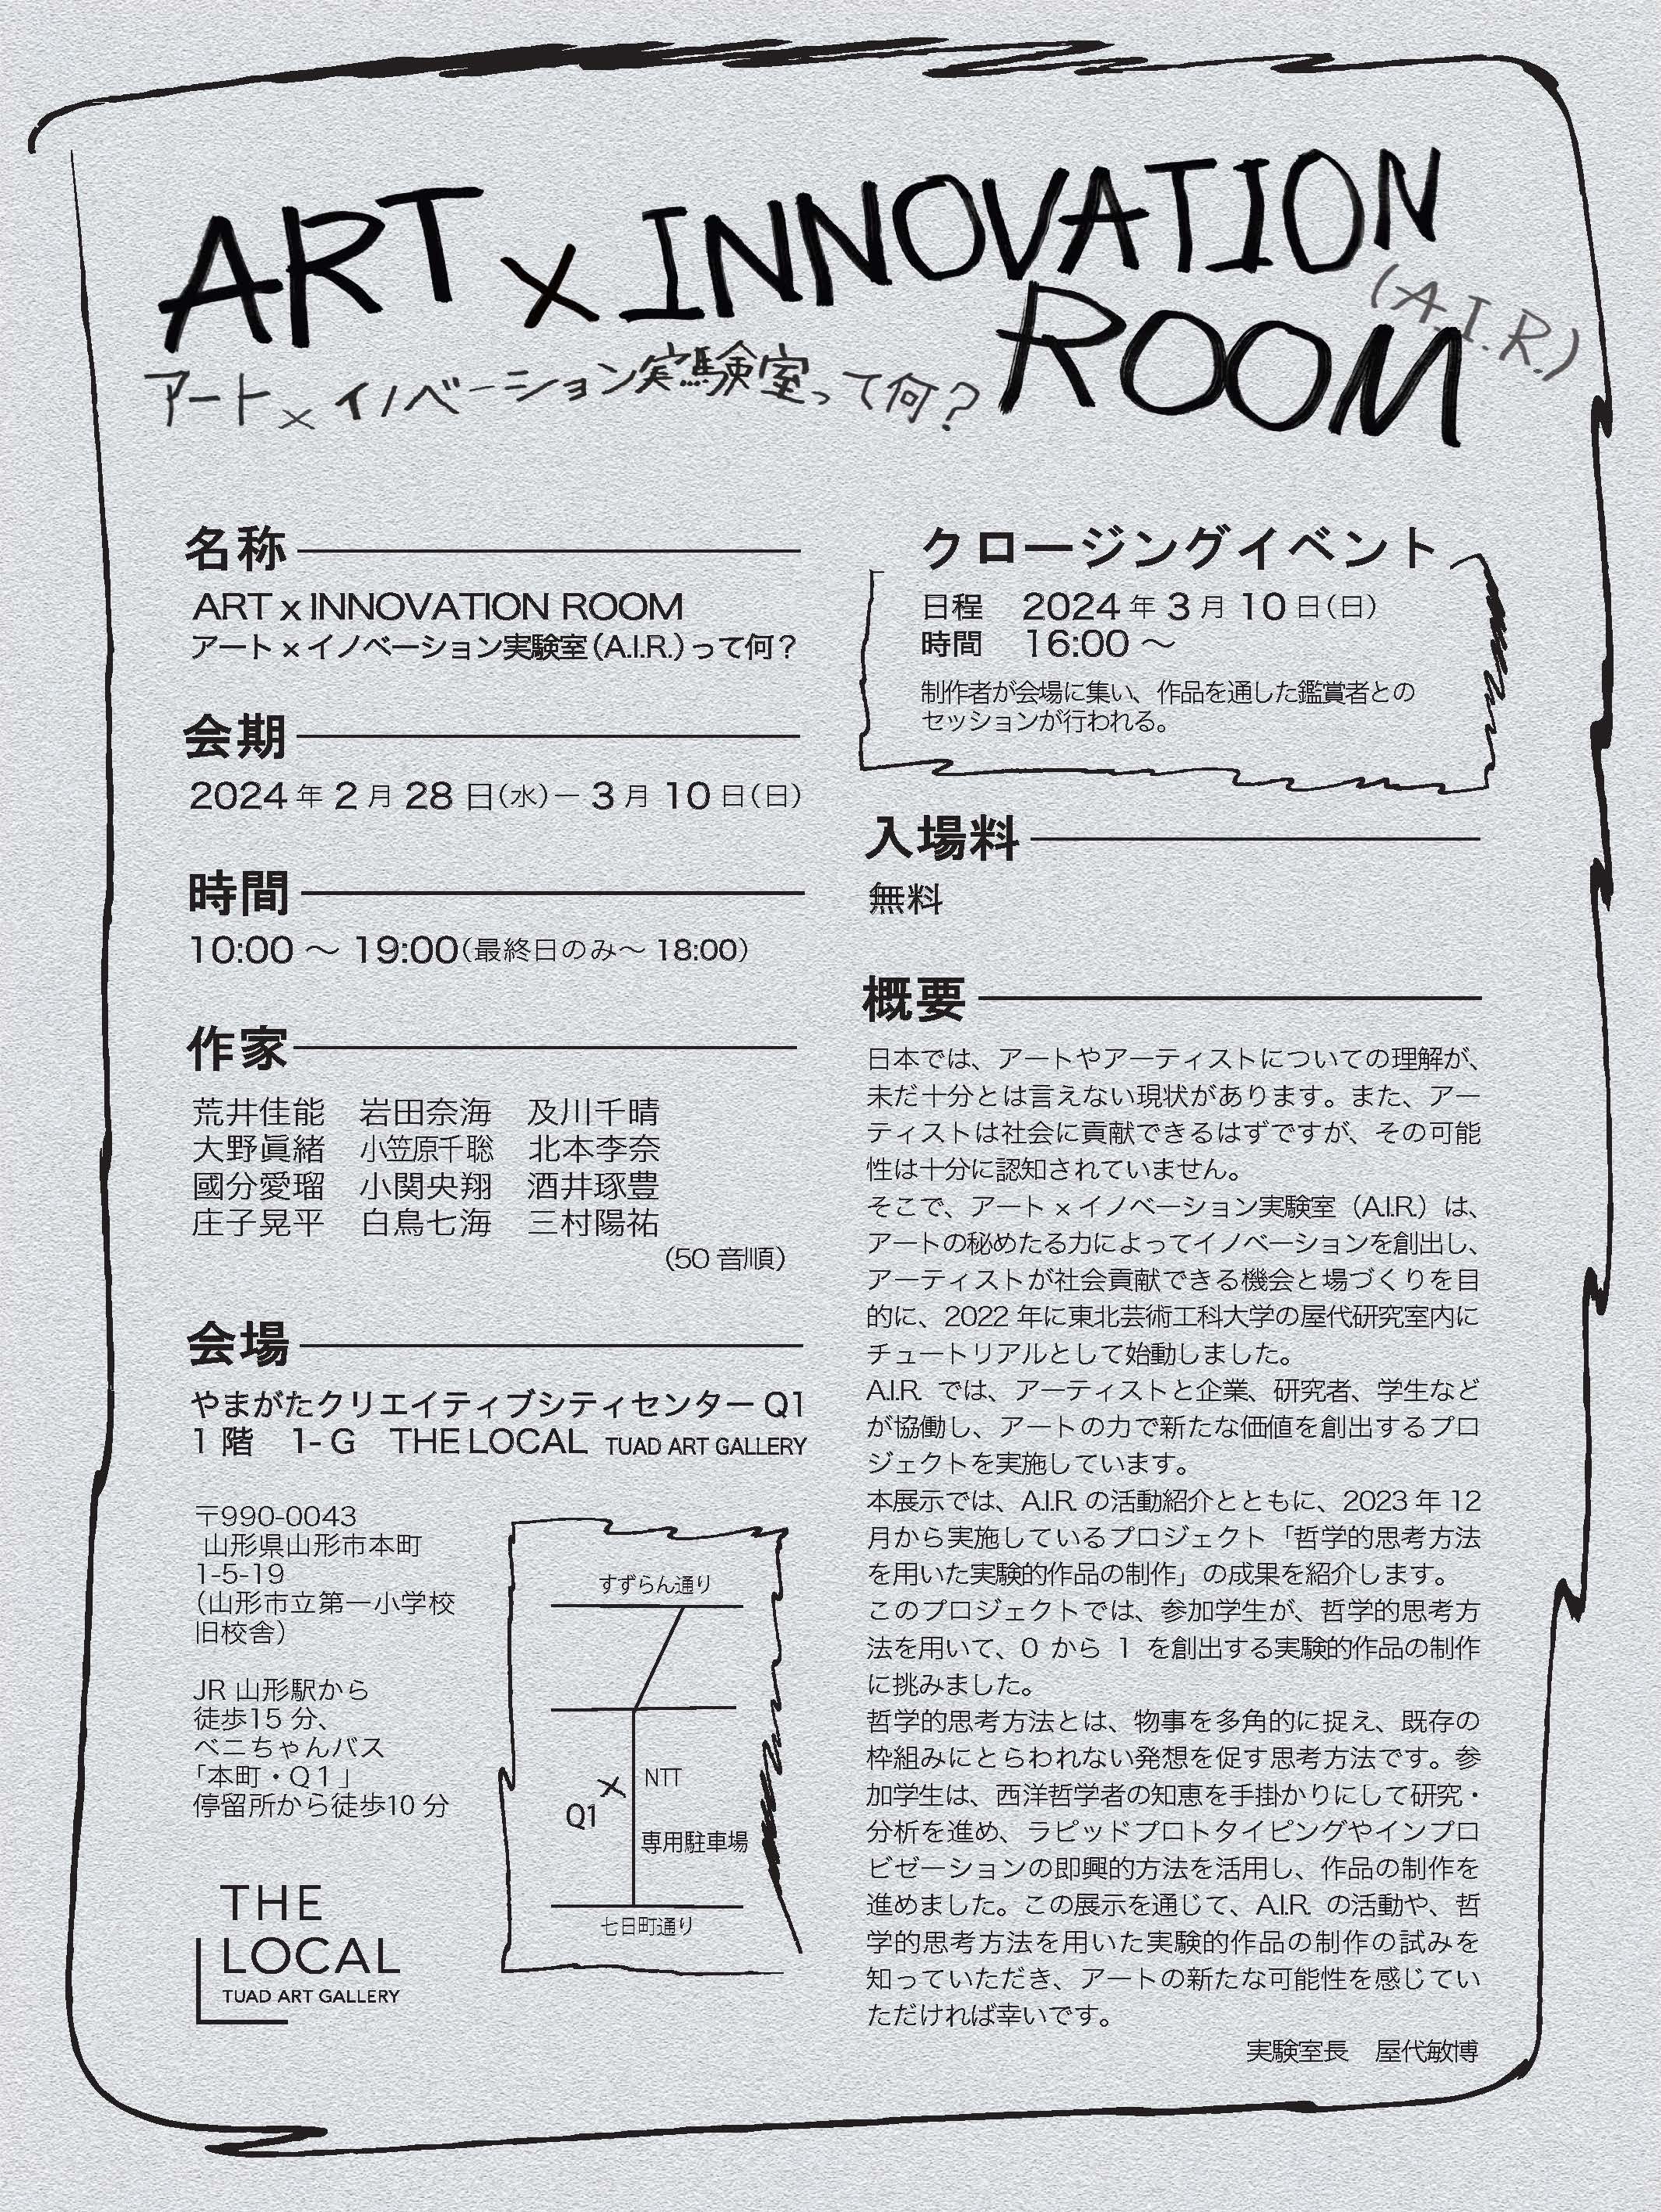 ART x INNOVATION
ROOM
(A.I.R.)
アート×イノベーション実験室って何？
名称
ART x INNOVATION ROOM
アート×イノベーション実験室（A.I.R.）って何？
会期
2024年2月28日（水）－3月10日（日）
時間
10:00 ～ 19:00（最終日のみ～ 18:00）
作家
荒井佳能　岩田奈海　及川千晴
大野眞緒　小笠原千聡　北本李奈
國分愛瑠　小関央翔　酒井琢豊
庄子晃平　白鳥七海　三村陽祐
（50音順）
会場
やまがたクリエイティブシティセンターQ1
1階　1-G　THE LOCAL TUAD ART GALLERY
〒990-0043
山形県山形市本町
1-5-19
（山形市立第一小学校
旧校舎）
JR 山形駅から
徒歩15 分、
べニちゃんバス
「本町・Q1」
停留所から徒歩10 分
THE
LOCAL
TUAD ART GALLERY
すずらん通り
NTT
Q1
専用駐車場
七日町通り
クロージングイベント
日程　2024年3月10日（日）
時間　16:00 ～
制作者が会場に集い、作品を通した鑑賞者との
セッションが行われる。
入場料
無料
概要
日本では、アートやアーティストについての理解が、
未だ十分とは言えない現状があります。また、アー
ティストは社会に貢献できるはずですが、その可能
性は十分に認知されていません。
そこで、アート×イノベーション実験室（A.I.R.）は、
アートの秘めたる力によってイノベーションを創出し、
アーティストが社会貢献できる機会と場づくりを目
的に、2022 年に東北芸術工科大学の屋代研究室内に
チュートリアルとして始動しました。
A.I.R. では、アーティストと企業、研究者、学生など
が協働し、アートの力で新たな価値を創出するプロ
ジェクトを実施しています。
本展示では、A.I.R. の活動紹介とともに、2023 年 12
月から実施しているプロジェクト「哲学的思考方法
を用いた実験的作品の制作」の成果を紹介します。
このプロジェクトでは、参加学生が、哲学的思考方
法を用いて、0 から 1 を創出する実験的作品の制作
に挑みました。
哲学的思考方法とは、物事を多角的に捉え、既存の
枠組みにとらわれない発想を促す思考方法です。参
加学生は、西洋哲学者の知恵を手掛かりにして研究・
分析を進め、ラピッドプロトタイピングやインプロ
ビゼーションの即興的方法を活用し、作品の制作を
進めました。この展示を通じて、A.I.R. の活動や、哲
学的思考方法を用いた実験的作品の制作の試みを
知っていただき、アートの新たな可能性を感じてい
ただければ幸いです。
実験室長　屋代敏博